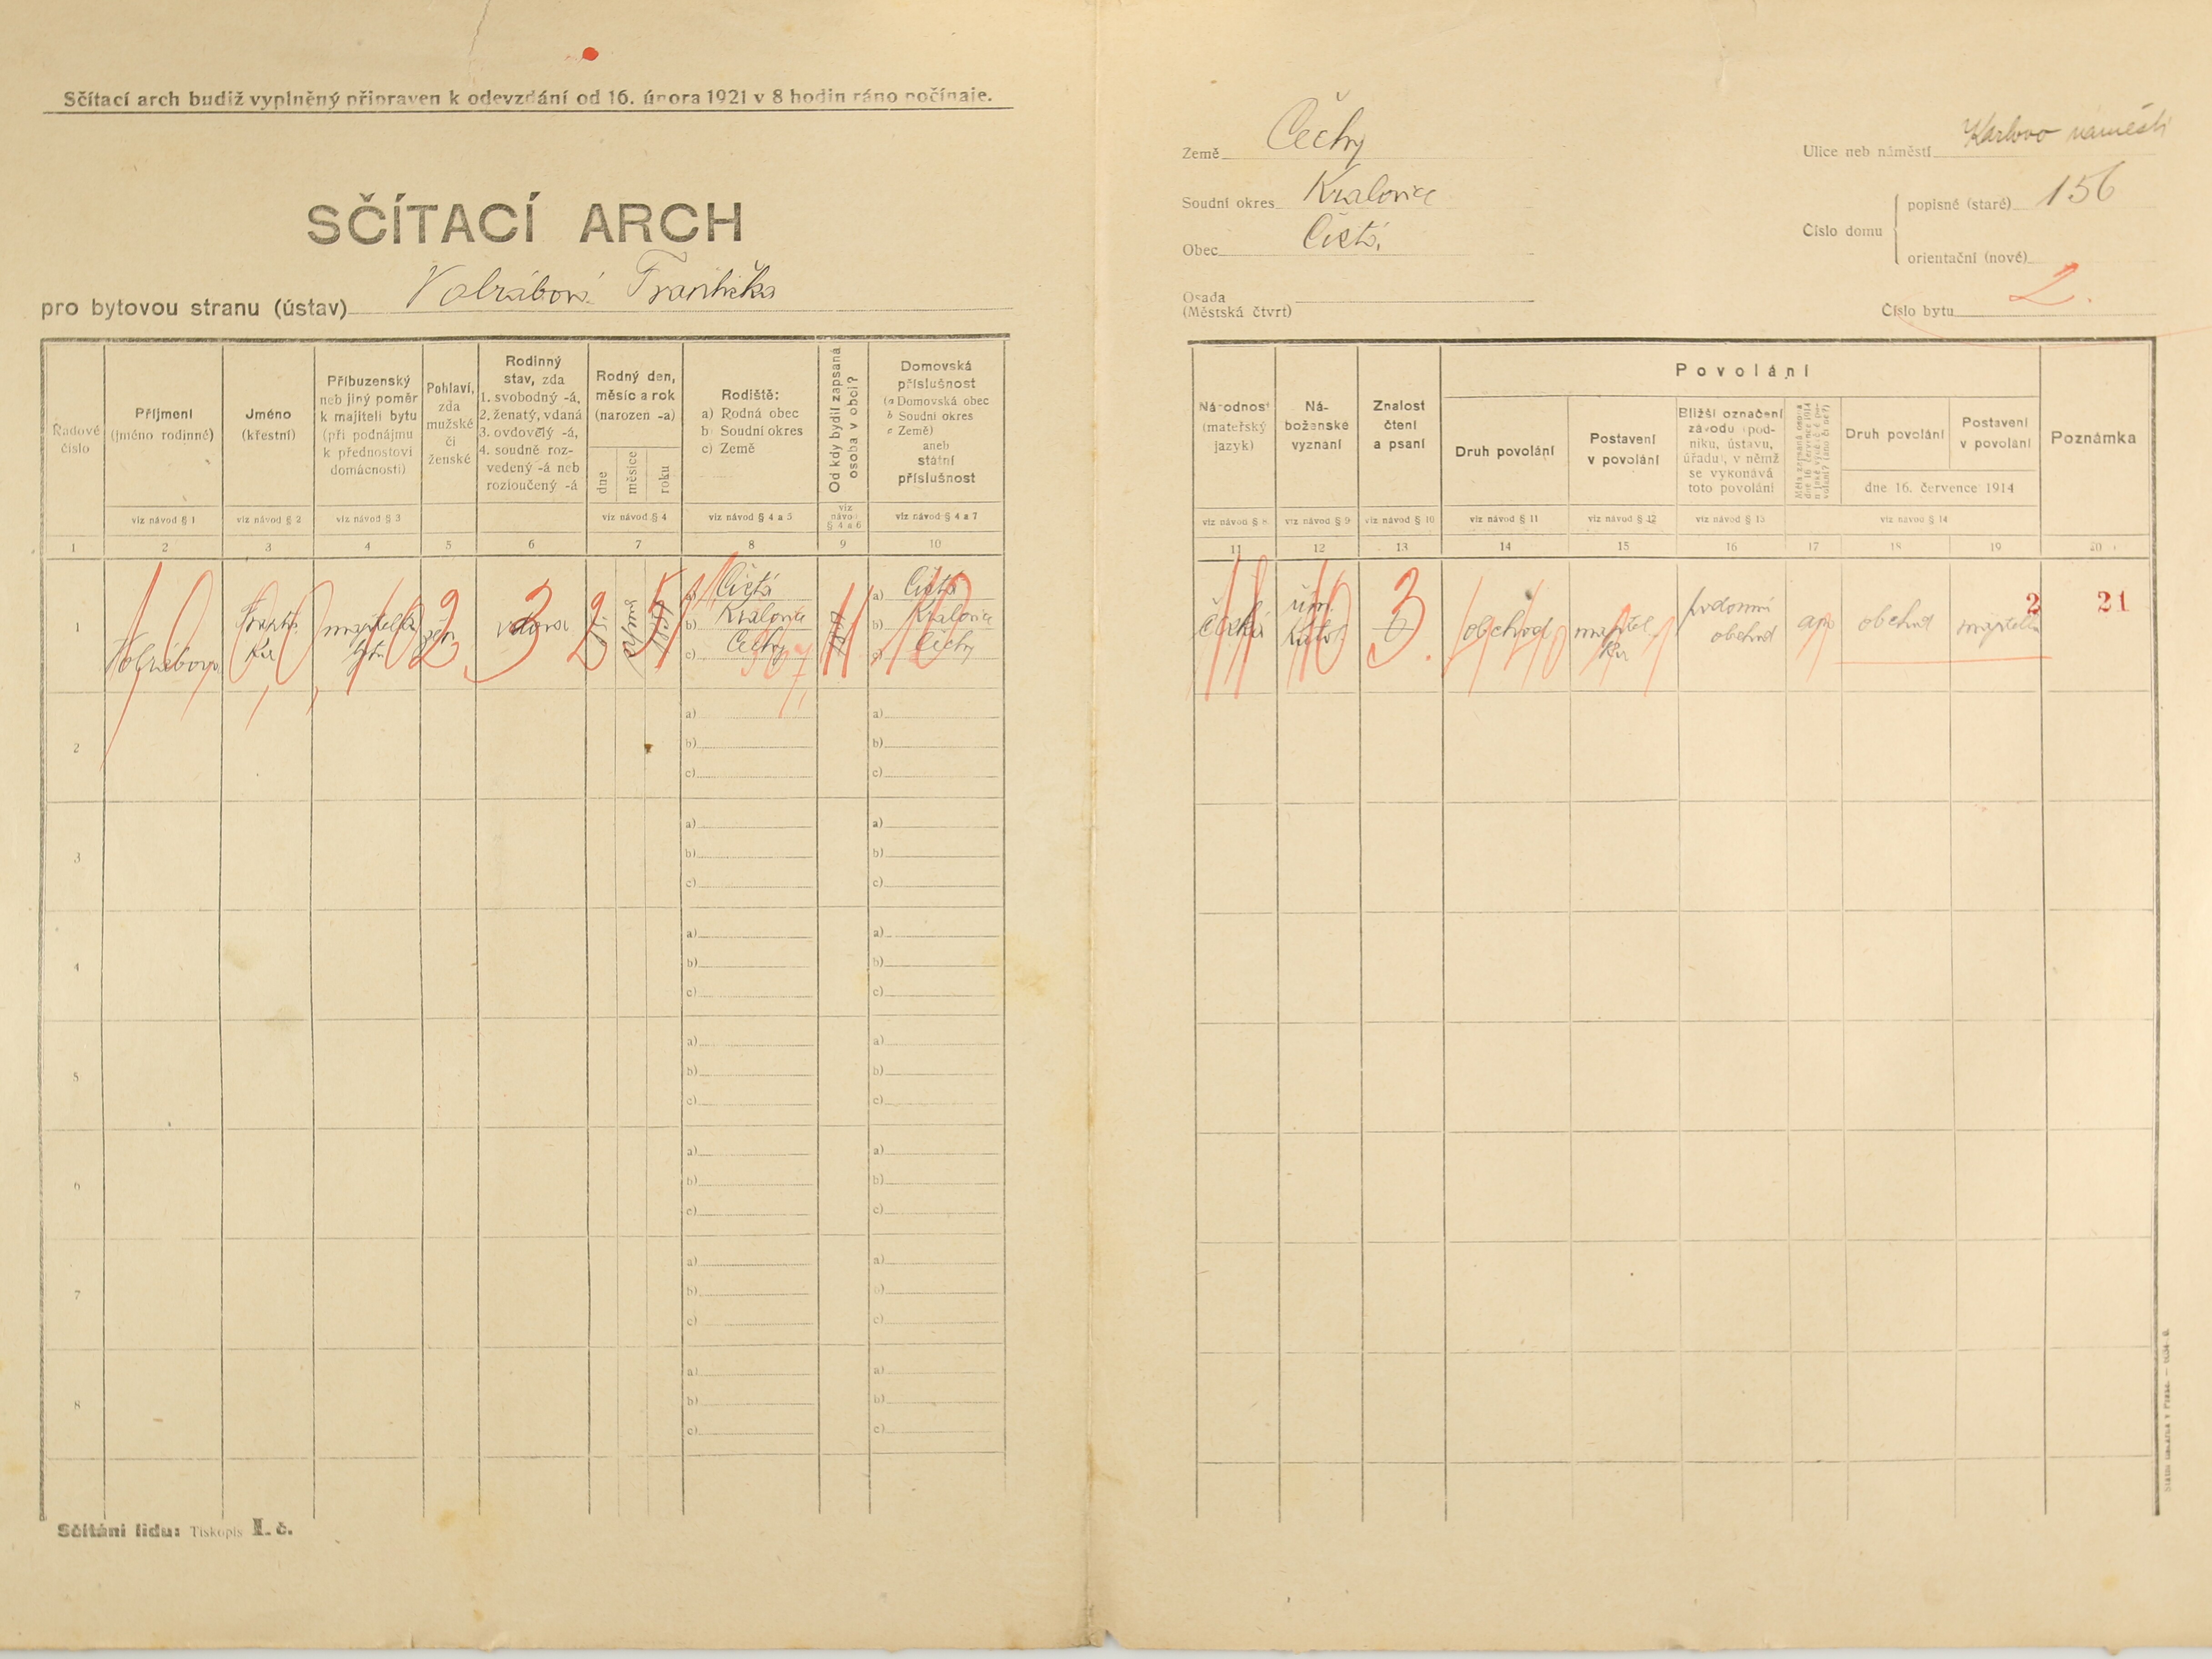 Sčítací arch budiž vyplněný připraven k odevzdání od 16. února 1921 v 8 hodin ráno počínaje.
SČÍTACÍ ARCH
pro bytovou stranu (ústav) Volrábová Františka
Země Čechy
Soudní okres Kralovice
Obec Čistá
Osada
(Městská čtvrt)
Ulice neb náměstí Karlovo náměstí
Číslo domu
popisné (staré) 156
orientační (nové)
Číslo bytu 2.
Řadové
číslo
Příjmení
(jméno rodinné)
viz návod § 1
Jméno
(křestní)
viz návod § 2
Příbuzenský
neb jiný poměr
k majiteli bytu
(při podnájmu
k přednostovi
domácnosti)
viz návod § 3
Pohlaví,
zda
mužské
či
ženské
Rodinný
stav, zda
1. svobodný -á,
2. ženatý, vdaná
3. ovdovělý -á,
4. soudně roz-
vedený -á neb
rozloučený -á
Rodný den,
měsíc a rok
(narozen -a)
dne
měsíce
roku
viz návod § 4
Rodiště:
a) Rodná obec
b) Soudní okres
c) Země
viz návod § 4 a 5
Od kdy bydlí zapsaná
osoba v obci?
viz
návod
§ 4 a 6
Domovská
příslušnost
(a Domovská obec
b Soudní okres
c Země)
aneb
státní
příslušnost
viz návod § 4 a 7
Národnost
(mateřský
jazyk)
viz návod § 8
Ná-
boženské
vyznání
viz návod § 9
Znalost
čtení
a psaní
viz návod § 10
Povolání
Druh povolání
viz návod § 11
Postavení
v povolání
viz návod § 12
Bližší označení
závodu (pod-
niku, ústavu,
úřadu), v němž
se vykonává
toto povolání
viz návod § 13
Druh povolání
Postavení
v povolání
dne 16. července 1914
viz návod § 14
Poznámka
1 2 3 4 5 6 7 8 9 10
11 12 13 14 15 16 17 18 19 20
1
Volrábová
majitelka
bytu
vdova
a) Čistá
b) Kralovice
c) Čechy
a) Čistá
b) Kralovice
c) Čechy
česká
řím.
obchod
obchod
ano
obchod
majitelka
2
3
2
3.
2
21
2
a)
b)
c)
a)
b)
c)
3
a)
b)
c)
a)
b)
c)
4
a)
b)
c)
a)
b)
c)
5
a)
b)
c)
a)
b)
c)
6
a)
b)
c)
a)
b)
c)
7
a)
b)
c)
a)
b)
c)
8
a)
b)
c)
a)
b)
c)
Sčítání lidu: Tiskopis I. č.